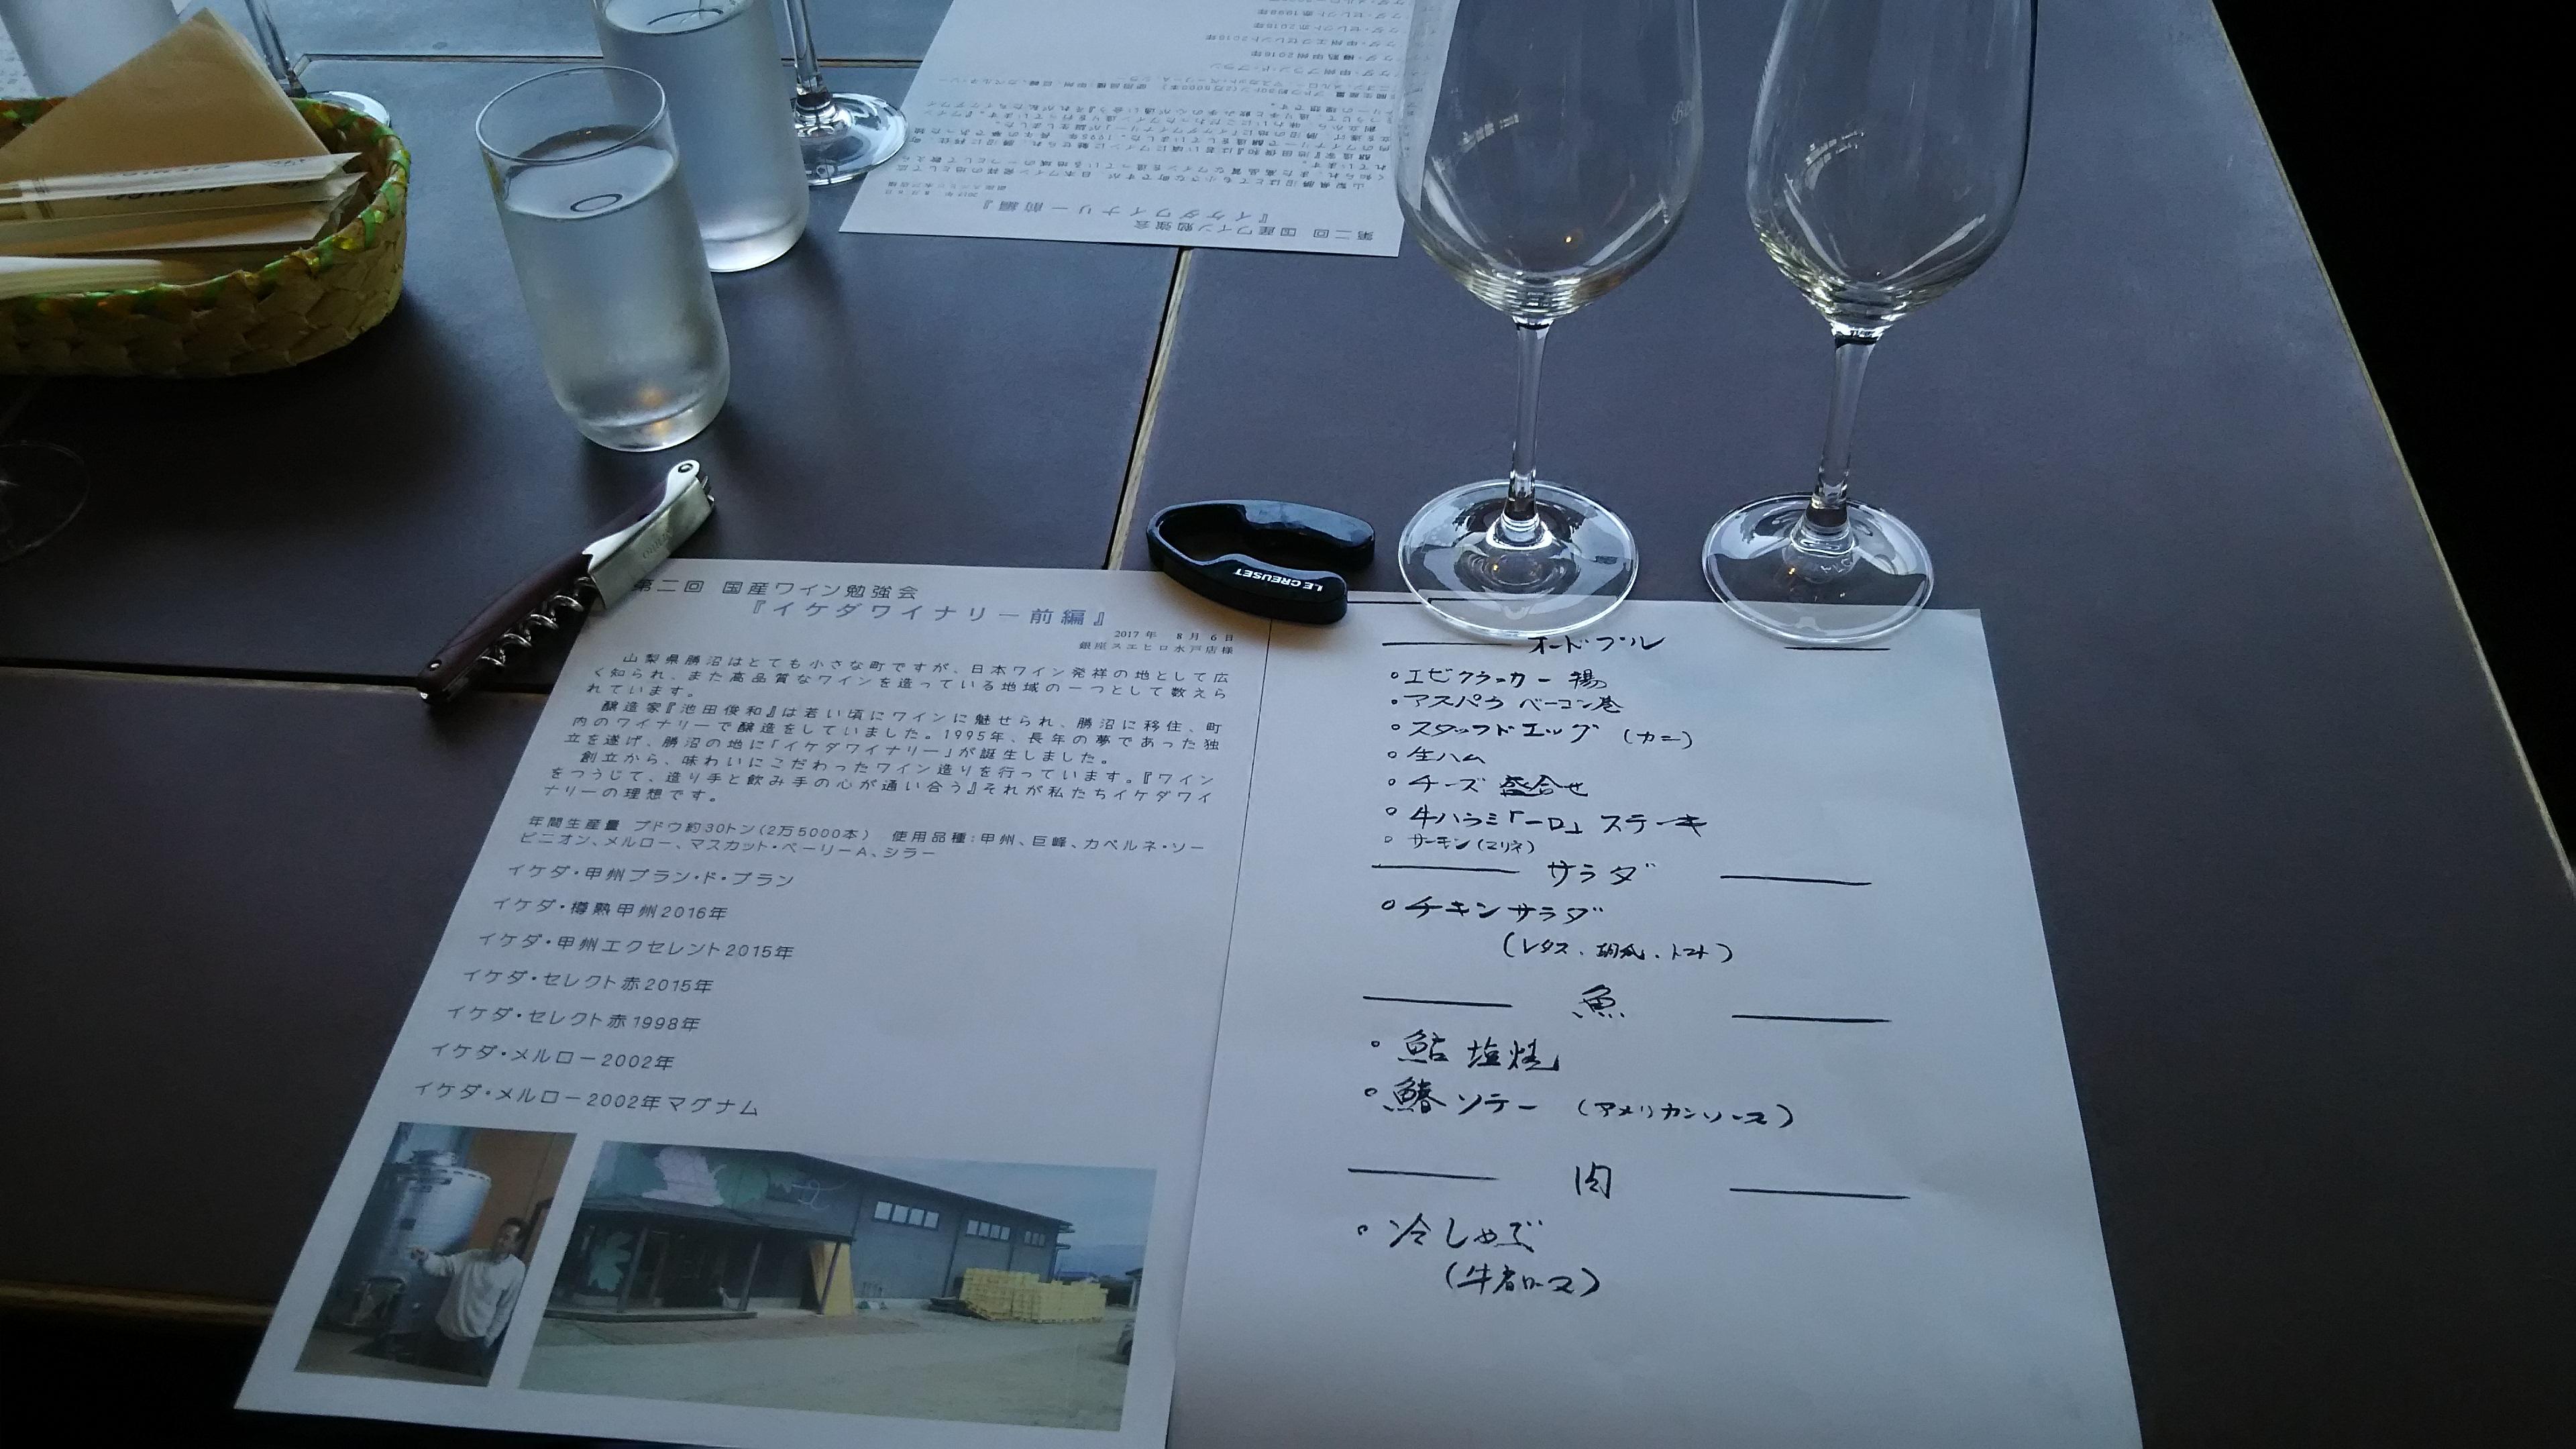 第二回 国産ワイン勉強会
『イケダワイナリー前編』
2017年 8月6日
銀座スエヒロ水戸店様
山梨県勝沼はとても小さな町ですが、日本ワイン発祥の地として広
く知られ、また高品質なワインを造っている地域の一つとして数えら
れています。
醸造家『池田俊和』は若い頃にワインに魅せられ、勝沼に移住、町
内のワイナリーで醸造をしていました。1995年、長年の夢であった独
立を遂げ、勝沼の地に「イケダワイナリー」が誕生しました。
創立から、味わいにこだわったワイン造りを行っています。『ワイン
をつうじて、造り手と飲み手の心が通い合う』それが私たちイケダワイ
ナリーの理想です。
年間生産量 ブドウ約30トン(2万5000本) 使用品種:甲州、巨峰、カベルネ・ソー
ビニオン、メルロー、マスカット・ベーリーA、シラー
イケダ・甲州ブラン・ド・ブラン
イケダ・樽熟甲州2016年
イケダ・甲州エクセレント2015年
イケダ・セレクト赤2015年
イケダ・セレクト赤1998年
イケダ・メルロー2002年
イケダ・メルロー2002年マグナム
LE CREUSET
オードブル
エビクラッカー 揚
アスパラ ベーコン巻
スタッフドエッグ (カニ)
生ハム
チーズ 盛合せ
牛ハラミ「一口」ステーキ
サーモン(マリネ)
サラダ
チキンサラダ
(レタス、胡瓜、トマト)
魚
鮎 塩焼
鰆ソテー (アメリカンソース)
肉
冷しゃぶ
(牛肩ロース)
第二回 国産ワイン勉強会
『イケダワイナリー前編』